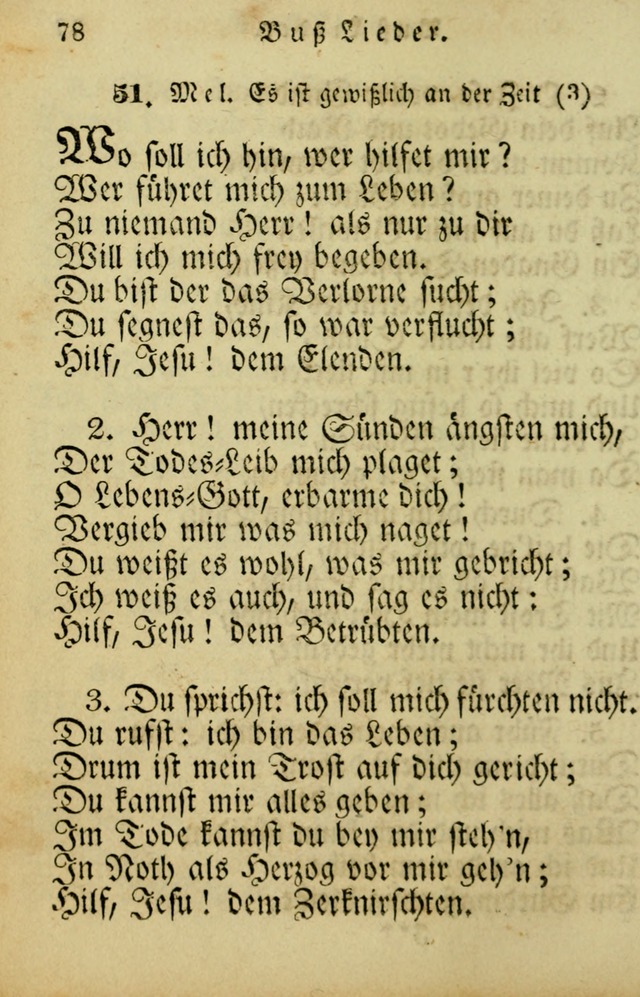 78 Buß Lieder.
51. Mel. Es ist gewißlich an der Zeit (3)
Wo soll ich hin, wer hilfet mir?
Wer führet mich zum Leben?
Zu niemand Herr! als nur zu dir
Will ich mich frey begeben.
Du bist der das Verlorne sucht;
Du segnest das, so war verflucht;
Hilf, Jesu! dem Elenden.
2. Herr! meine Sünden ängsten mich,
Der Todes-Leib mich plaget;
O Lebens-Gott, erbarme dich!
Vergieb mir was mich naget!
Du weißt es wohl, was mir gebricht;
Ich weiß es auch, und sag es nicht:
Hilf, Jesu! dem Betrübten.
3. Du sprichst: ich soll mich fürchten nicht.
Du rufst: ich bin das Leben;
Drum ist mein Trost auf dich gericht;
Du kannst mir alles geben;
Im Tode kannst du bey mir steh'n,
In Noth als Herzog vor mir geh'n;
Hilf, Jesu! dem Zerknirschten.